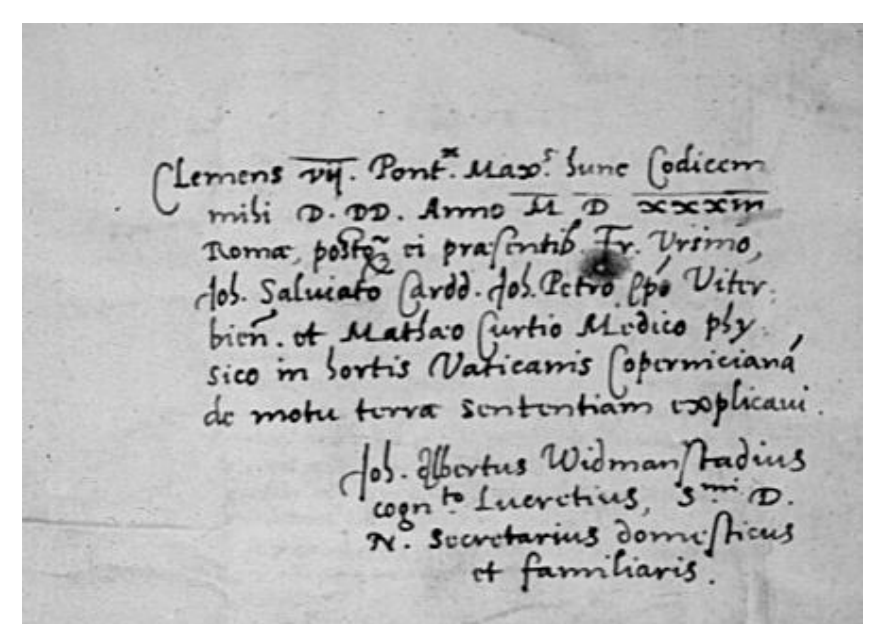 Clemens vij. Pont.x Maxs. hunc Codicem
mihi D. DD. Anno M D XXXIII
Romæ, postq̃ ei præsentib. Fr. Vrsino,
Joh. Salviato Cardd. Joh. Petro Epõ Viter-
bieñ. et Mathæo Curtio Medico phy-
sico in hortis Vaticanis Copernicianã
de motu terræ sententiam explicavi.
Joh. Albertus Widmanstadius
cogn.to Lucretius, S.mi D.
N. Secretarius domesticus
et familiaris.